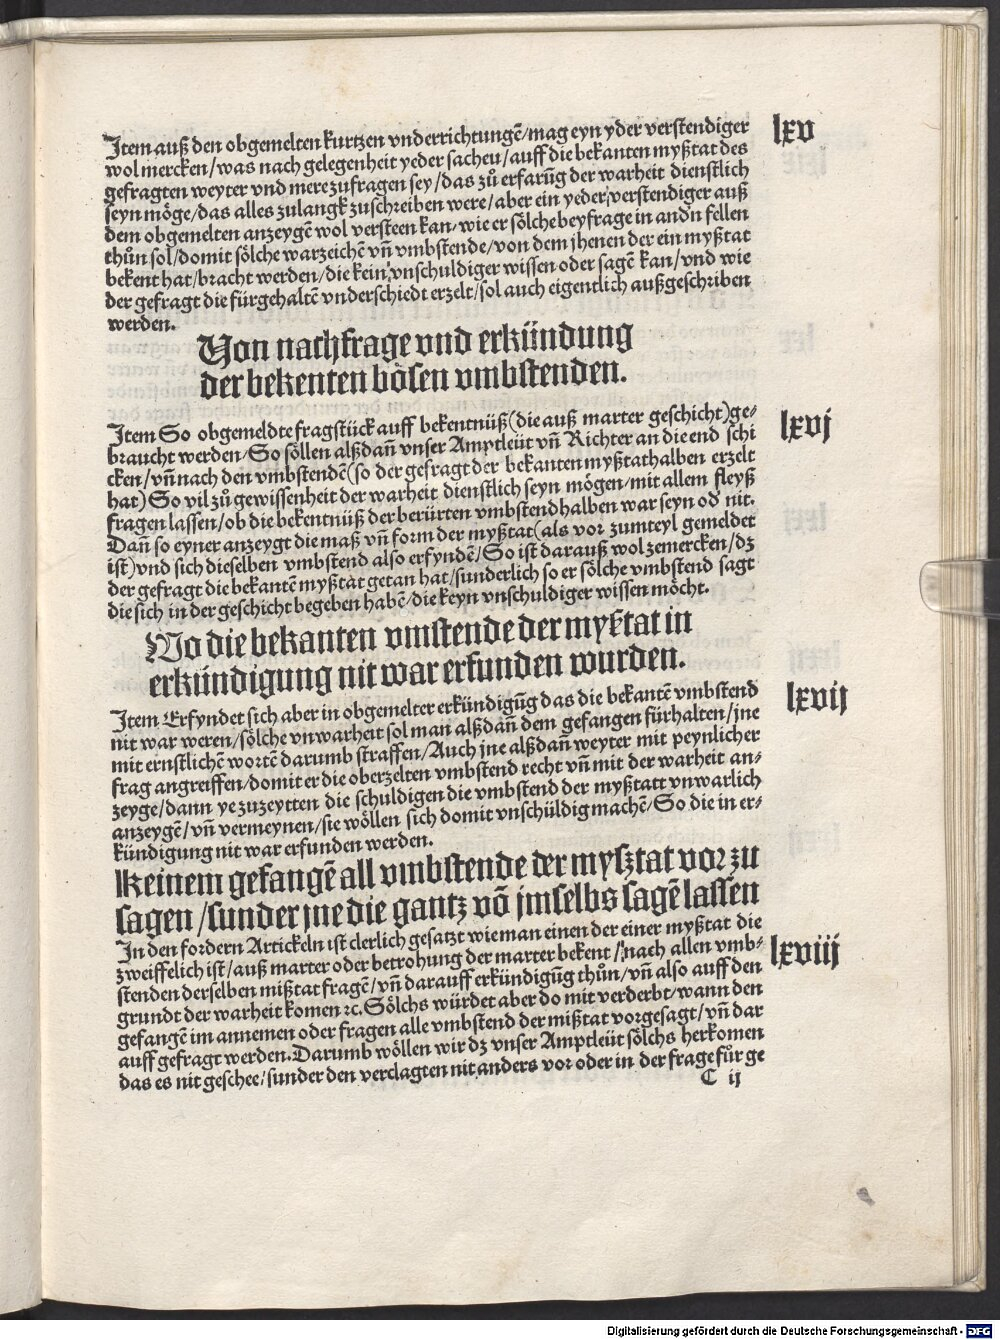 Item auß den obgemelten kurtzen vnderrichtungē/mag eyn yder verstendiger
wol mercken/was nach gelegenheit yeder sacheu/auff die bekanten myßtat des
gefragten weyter vnd mere zufragen sey/das zů erfarūg der warheit dienstlich
seyn möge/das alles zulangk zuschreiben were/aber ein yeder verstendiger auß
dem obgemelten anzeygē wol versteen kan/wie er sölche beyfrage in andn fellen
thůn sol/domit sölche warzeichē vn̄ vmbstende/von dem jhenen der ein myßtat
bekent hat/bracht werden/die kein vnschuldiger wissen oder sagē kan/vnd wie
der gefragt die fürgehaltē vnderschiedt erzelt/sol auch eigentlich außgeschriben
werden.
lxv
Von nachfrage vnd erkündung
der bekenten bösen vmbstenden.
Item So obgemeldte fragstück auff bekentnüß(die auß marter geschicht)ge-
braucht werden/So söllen alßdan̄ vnser Amptleüt vn̄ Richter an die end schi
cken/vn̄ nach den vmbstendē(so der gefragt der bekanten myßtathalben erzelt
hat)So vil zů gewissenheit der warheit dienstlich seyn mögen/mit allem fleyß
fragen lassen/ob die bekentnüß der berürten vmbstendhalben war seyn od nit.
Dan̄ so eyner anzeygt die maß vn̄ form der myßtat(als vor zumteyl gemeldet
ist)vnd sich dieselben vmbstend also erfyndē/So ist darauß wol zemercken/dz
der gefragt die bekantē myßtat getan hat/sunderlich so er sölche vmbstend sagt
die sich in der geschicht begeben habē/die keyn vnschuldiger wissen möcht.
lxvj
Wo die bekanten vmstende der myßtat in
erkündigung nit war erfunden wurden.
Item Erfyndet sich aber in obgemelter erkündigūg das die bekantē vmbstend
nit war weren/sölche vnwarheit sol man alßdan̄ dem gefangen fürhalten/jne
mit ernstlichē wortē darumb straffen/Auch jne alßdan̄ weyter mit peynlicher
frag angreiffen/domit er die oberzelten vmbstend recht vn̄ mit der warheit an-
zeyge/dann ye zuzeytten die schuldigen die vmbstend der myßtatt vnwarlich
anzeygē/vn̄ vermeynen/sie wöllen sich domit vnschüldig machē/So die in er-
kündigung nit war erfunden werden.
lxvij
Keinem gefangē all vmbstende der myſztat vor zu
sagen/sunder jne die gantz vō jmselbs sagē lassen
In den fordern Artickeln ist clerlich gesatzt wie man einen der einer myßtat die
zweiffelich ist/auß marter oder betrohung der marter bekent/nach allen vmb-
stenden derselben mißtat fragē/vn̄ darauff erkündigūg thůn/vn̄ also auff den
grundt der warheit komen ꝛc. Sölchs würdet aber do mit verderbt/wann den
gefangē im annemen oder fragen alle vmbstend der mißtat vorgesagt/vn̄ dar
auff gefragt werden. Darumb wöllen wir dz vnser Amptleüt sölchs herkomen
das es nit geschee/sunder den verclagten nit anders vor oder in der frage fůr ge
lxviij
C ij
Digitalisierung gefördert durch die Deutsche Forschungsgemeinschaft - DFG